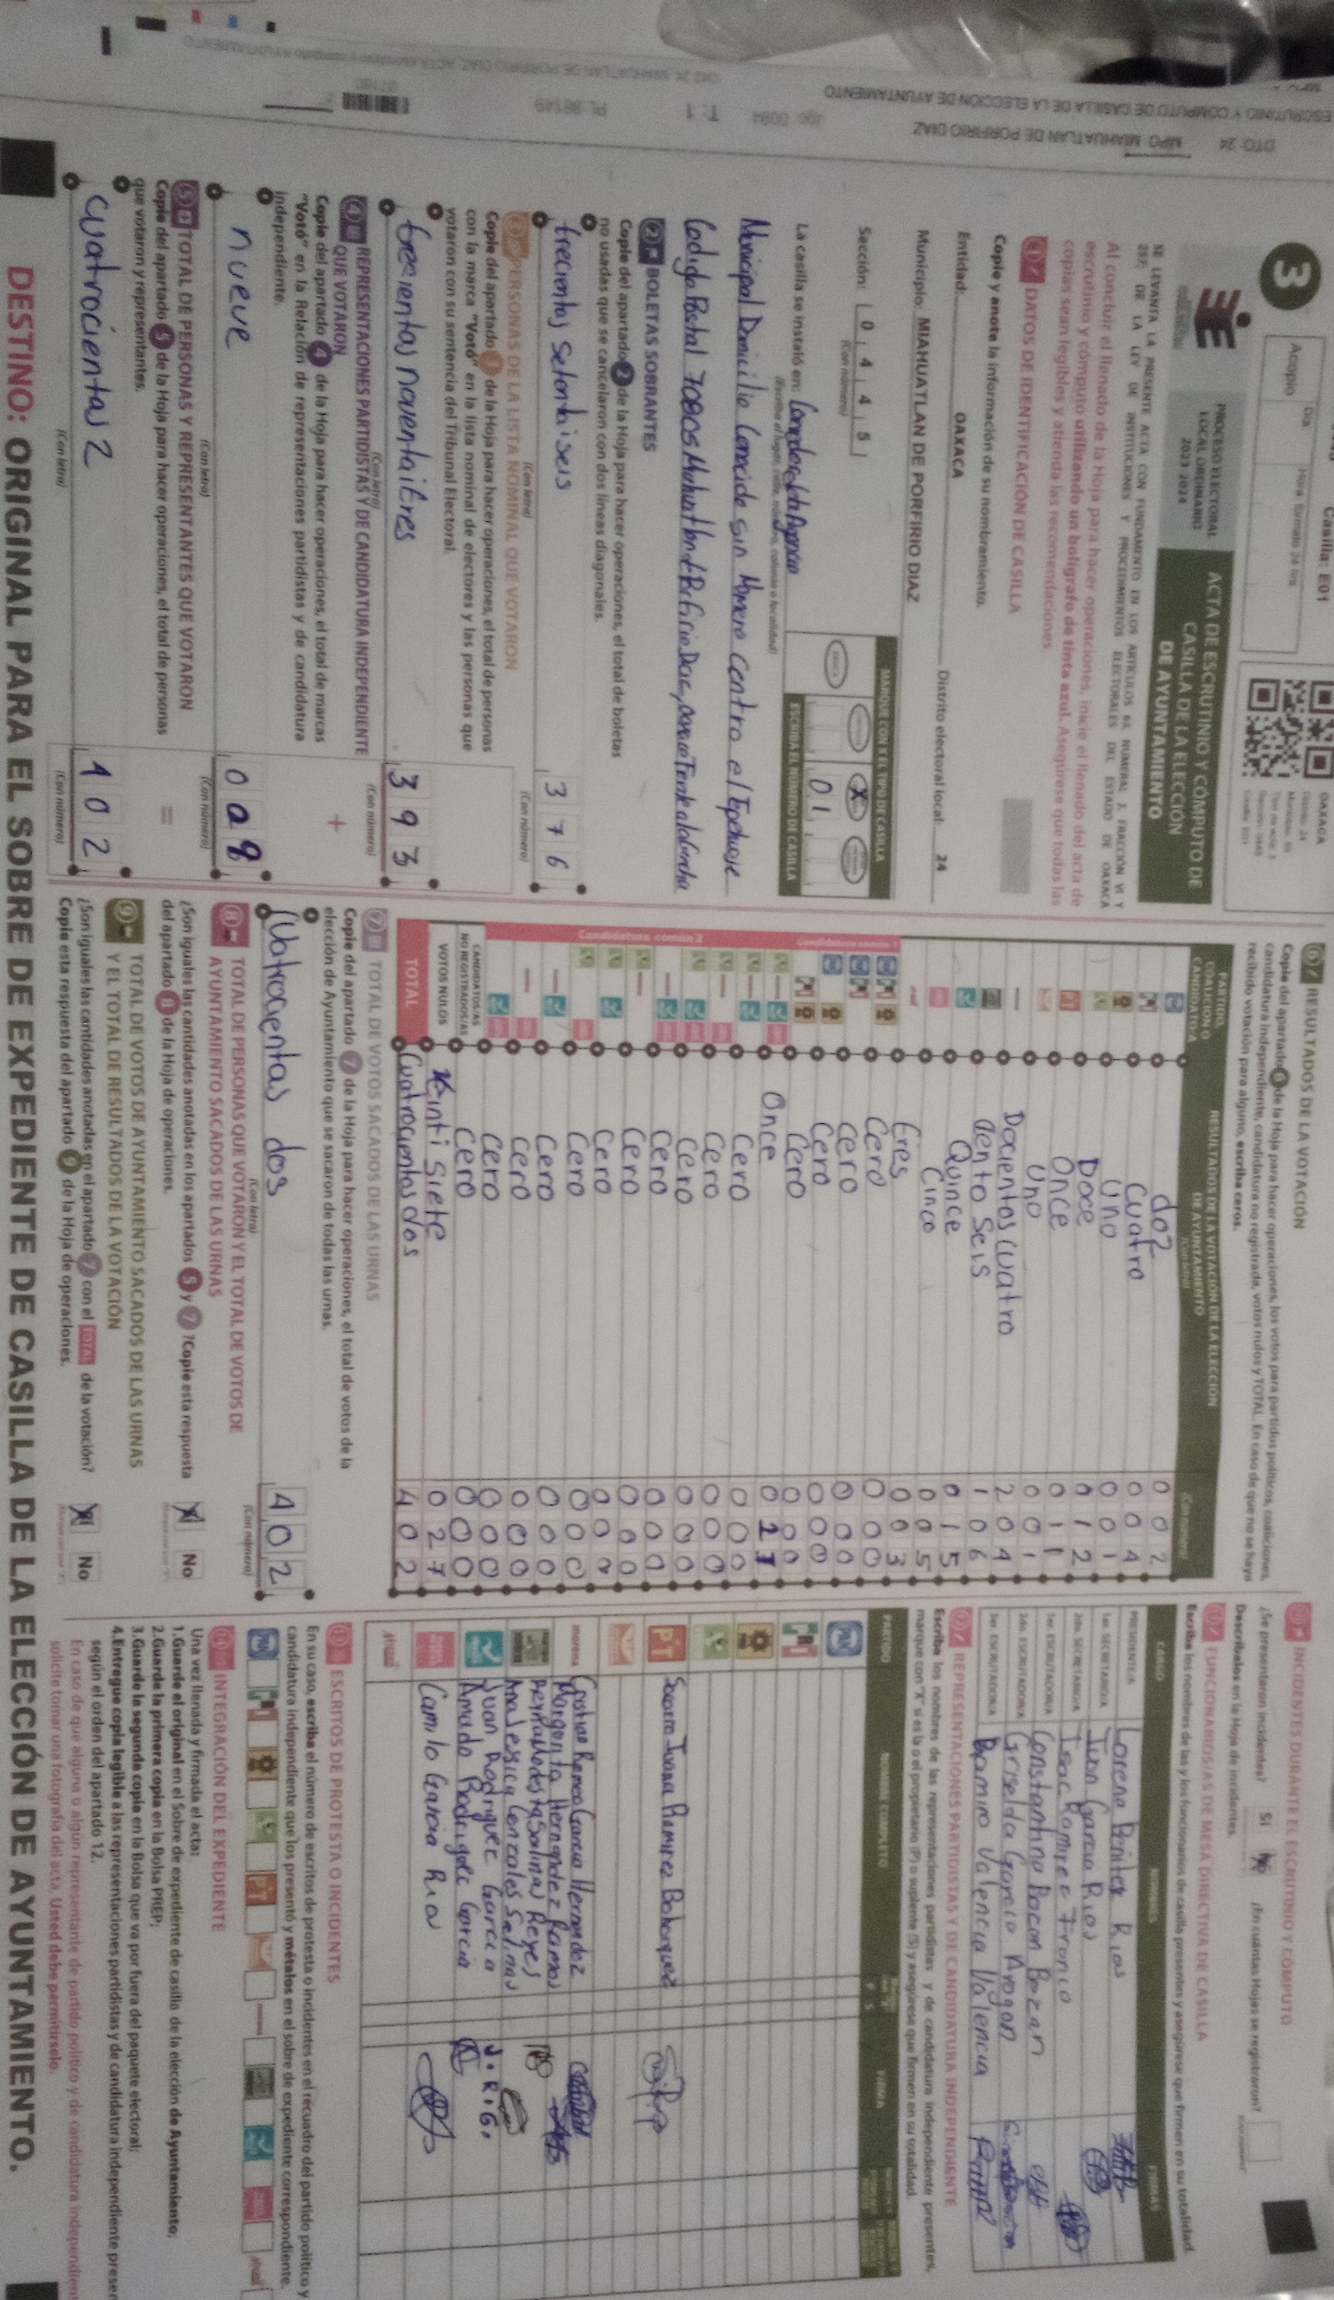 Casilla: E01
3
Acopio
Día
Hora: formato 24 hrs
OAXACA
PROCESO ELECTORAL
LOCAL ORDINARIO
2023-2024
ACTA DE ESCRUTINIO Y CÓMPUTO DE
CASILLA DE LA ELECCIÓN
DE AYUNTAMIENTO
Al concluir el llenado de la Hoja para hacer operaciones, inicie el llenado del acta de
escrutinio y cómputo utilizando un bolígrafo de tinta azul. Asegúrese que todas las
copias sean legibles y atienda las recomendaciones.
1 DATOS DE IDENTIFICACIÓN DE CASILLA
Copie y anote la información de su nombramiento.
Entidad: OAXACA Distrito electoral local: 24
Municipio: MIAHUATLAN DE PORFIRIO DIAZ
Sección: 0 4 4 5
(Con número)
MARQUE CON X EL TIPO DE CASILLA
X
0 1
ESCRIBA EL NÚMERO DE CASILLA
La casilla se instaló en:
Municipal Domicilio Conocido sin Número Centro el
Codigo Postal 70805
2 BOLETAS SOBRANTES
Copie del apartado 2 de la Hoja para hacer operaciones, el total de boletas
no usadas que se cancelaron con dos líneas diagonales.
trecientos setentaiseis 3 7 6
(Con letra) (Con número)
3 PERSONAS DE LA LISTA NOMINAL QUE VOTARON
Copie del apartado 3 de la Hoja para hacer operaciones, el total de personas
con la marca "Votó" en la lista nominal de electores y las personas que
votaron con su sentencia del Tribunal Electoral.
trecientos noventaitres 3 9 3
(Con letra) (Con número)
4 REPRESENTACIONES PARTIDISTAS Y DE CANDIDATURA INDEPENDIENTE
QUE VOTARON
+
Copie del apartado 4 de la Hoja para hacer operaciones, el total de marcas
"Votó" en la Relación de representaciones partidistas y de candidatura
independiente.
nueve 0 0 9
(Con letra) (Con número)
5 TOTAL DE PERSONAS Y REPRESENTANTES QUE VOTARON
=
Copie del apartado 5 de la Hoja para hacer operaciones, el total de personas
que votaron y representantes.
cuatrocientas 2 4 0 2
(Con letra) (Con número)
6 RESULTADOS DE LA VOTACIÓN
Copie del apartado 6 de la Hoja para hacer operaciones, los votos para partidos políticos, coaliciones,
candidatura independiente, candidatura no registrada, votos nulos y TOTAL. En caso de que no se haya
recibido votación para alguno, escriba ceros.
PARTIDO,
COALICIÓN O
CANDIDATO/A
RESULTADOS DE LA VOTACIÓN DE LA ELECCIÓN
DE AYUNTAMIENTO
dos 0 0 2
Cuatro 0 0 4
Uno 0 0 1
Doce 0 1 2
Once 0 1 1
Uno 0 0 1
Docientos cuatro 2 0 4
Ciento seis 1 0 6
Quince 0 1 5
Cinco 0 0 5
tres 0 0 3
Cero 0 0 0
Cero 0 0 0
Cero 0 0 0
Cero 0 0 0
Once
Cero 0 0 0
Cero 0 0 0
Cero 0 0 0
Cero 0 0 0
Cero 0 0 0
Cero 0 0 0
Cero 0 0 0
Cero 0 0 0
Cero 0 0 0
Cero 0 0 0
CANDIDATOS/AS
NO REGISTRADOS/AS
Cero 0 0 0
VOTOS NULOS
Veinti siete 0 2 7
TOTAL
Cuatrocientos dos 4 0 2
7 TOTAL DE VOTOS SACADOS DE LAS URNAS
Copie del apartado 7 de la Hoja para hacer operaciones, el total de votos de la
elección de Ayuntamiento que se sacaron de todas las urnas.
Cuatrocientas dos 4 0 2
(Con letra) (Con número)
8 TOTAL DE PERSONAS QUE VOTARON Y EL TOTAL DE VOTOS DE
AYUNTAMIENTO SACADOS DE LAS URNAS
¿Son iguales las cantidades anotadas en los apartados 5 y 7 ?Copie esta respuesta
del apartado 8 de la Hoja de operaciones.
No
9 TOTAL DE VOTOS DE AYUNTAMIENTO SACADOS DE LAS URNAS
Y EL TOTAL DE RESULTADOS DE LA VOTACIÓN
¿Son iguales las cantidades anotadas en el apartado 7 con el TOTAL de la votación?
Copie esta respuesta del apartado 9 de la Hoja de operaciones.
No
INCIDENTES DURANTE EL ESCRUTINIO Y CÓMPUTO
¿Se presentaron incidentes? Sí ¿En cuántas Hojas se registraron?
Descríbalos en la Hoja de incidentes.
FUNCIONARIOS/AS DE MESA DIRECTIVA DE CASILLA
Escriba los nombres de las y los funcionarios de casilla presentes y asegúrese que firmen en su totalidad.
CARGO NOMBRES FIRMAS
PRESIDENTE/A Lorena Benitez Rios
Juan Garcia Rios
Isac Ramirez
Constantino Bacan Bazan
Griselda Garcia Aragon
Ramiro Valencia Valencia
REPRESENTACIONES PARTIDISTAS Y DE CANDIDATURA INDEPENDIENTE
Escriba los nombres de las representaciones partidistas y de candidatura independiente presentes,
marque con "X" si es la o el propietario (P) o suplente (S) y asegúrese que firmen en su totalidad.
PARTIDO NOMBRE COMPLETO P S FIRMA
PAN
PT Socorro Juana Ramirez Bohorquez
morena Garcia Hernandez
Margarita Hernandez Ramos
Salinas Reyes
Ana Jessica Gonzales Salinas
Juan Rodriguez Garcia J.R.G.
Amado Rodriguez Garcia
Camilo Garcia Rios
ESCRITOS DE PROTESTA O INCIDENTES
En su caso, escriba el número de escritos de protesta o incidentes en el recuadro del partido político y
candidatura independiente que los presentó y métalos en el sobre de expediente correspondiente.
INTEGRACIÓN DEL EXPEDIENTE
Una vez llenada y firmada el acta:
1.Guarde el original en el Sobre de expediente de casilla de la elección de Ayuntamiento;
2.Guarde la primera copia en la Bolsa PREP;
3.Guarde la segunda copia en la Bolsa que va por fuera del paquete electoral;
4.Entregue copia legible a las representaciones partidistas y de candidatura independiente presen
según el orden del apartado 12.
En caso de que alguna o algún representante de partido político y de candidatura independient
solicite tomar una fotografía del acta, Usted debe permitírselo.
DESTINO: ORIGINAL PARA EL SOBRE DE EXPEDIENTE DE CASILLA DE LA ELECCIÓN DE AYUNTAMIENTO.